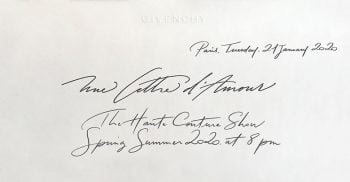 GIVENCHY
Paris, Tuesday, 21 January 2020
Une Lettre d'Amour
The Haute Couture Show
Spring Summer 2020 at 8 pm